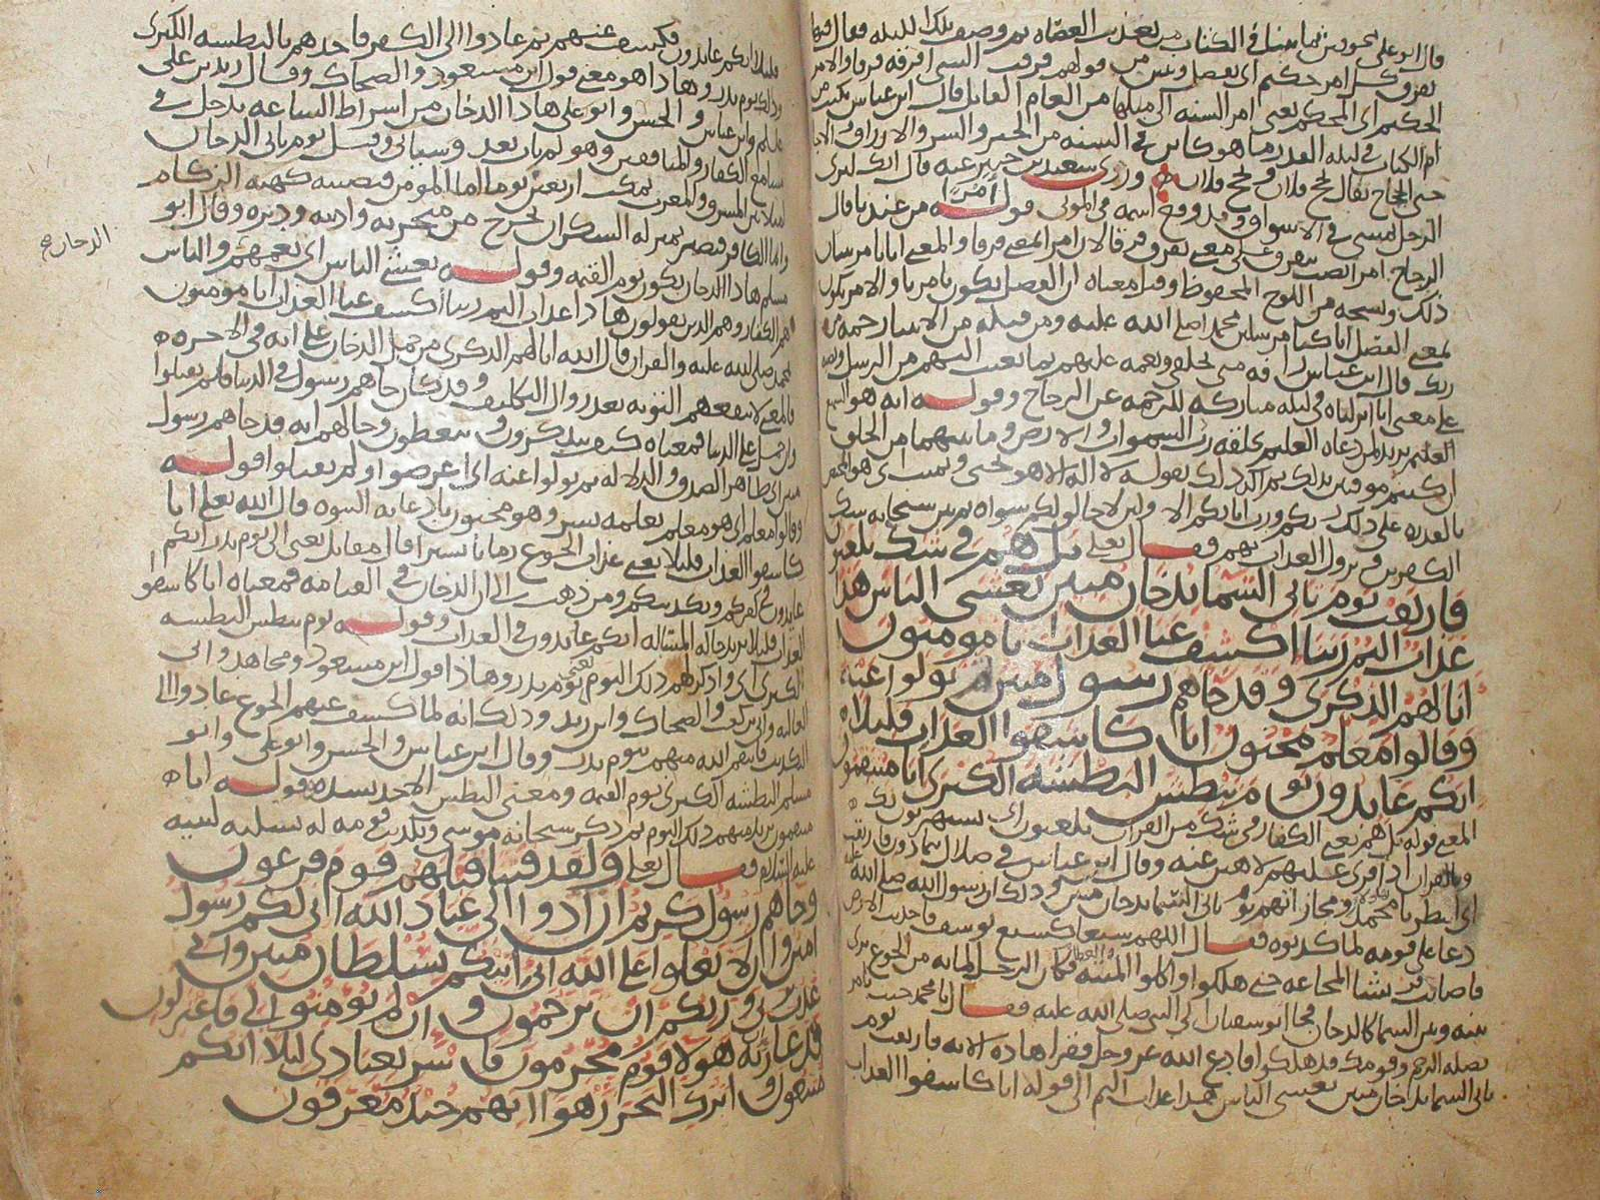 قال ابو على
يفرق كل امر حكيم اى يفصل
الحكيم اى المحكم يعنى امر السنه الى مثلها من العام القابل قال ابن عباس يكتب من
ام الكتاب فى ليله القدر ما هو كاين فى السنه من الخير والشر والارزاق
حتى الحجاج يقال يحج فلان ويحج فلان وروى سعيد بن جبير عنه قال انك لترى
الرجل يمشى فى الاسواق وقد وقع اسمه فى الموتى قوله امرا من عندنا قال
الزجاج امرا نصب بيفرق
ذلك ونسخه من اللوح المحفوظ وقيل معناه ان الفصل يكون بامرنا
انا كنا مرسلين محمدا صلى الله عليه ومن قبله من الانبيا رحمه من
ربك قال ابن عباس رافه منى بخلقى ونعمه عليهم بما بعثت اليهم من الرسل
على معنى انا انزلناه فى ليله مباركه للرحمه عن الزجاج وقوله انه هو السميع
العليم يريد لمن دعاه العليم بخلقه رب السموات والارض وما بينهما من الخلق
ان كنتم موقنين بذلك ثم اكد ذلك بقوله لا اله الا هو يحيى ويميت
بالقدره على ذلك ربكم ورب ابايكم الاولين لا خالق لكم سواه ثم بين سبحانه شك
الكفرين فى نزول العذاب بهم فقال تعلى بل هم فى شك يلعبون
فارتقب يوم تاتى السما بدخان مبين يغشى الناس هذا
عذاب اليم ربنا اكشف عنا العذاب انا مومنون
انا لهم الذكرى وقد جاهم رسول مبين ثم تولوا عنه
وقالوا معلم مجنون انا كاشفوا العذاب قليلا
انكم عايدون يوم نبطش البطشه الكبرى انا منتقمون
المعنى قوله بل هم يعنى الكفار فى شك من القران يلعبون اى يستهزون بك
وبالقران اذا قرى عليهم لاهين عنه وقال ابن عباس فى ضلال يتمادون فارتقب
اى انتظر يا محمد يوم تاتى السما بدخان مبين وذلك ان رسول الله صلى الله عليه
دعا على قومه لما كذبوه فقال اللهم سبعا كسبع يوسف فاجدبت الارض
فاصابت قريشا المجاعه حتى هلكوا واكلوا الميته والعظام فكان الرجل لما به من الجوع يرى
بينه وبين السما كالدخان فجا ابو سفيان الى النبى صلى الله عليه فقال يا محمد جيت تامر
بصله الرحم وقومك قد هلكوا فادع الله عز وجل فقرا هذه الايه فارتقب يوم
تاتى السما بدخان مبين يغشى الناس هذا عذاب اليم الى قوله انا كاشفوا العذاب
قليلا انكم عايدون فكشف عنهم ثم عادوا الى الكفر فاخذهم بالبطشه الكبرى
وذلك يوم بدر وهاذا هو معنى قول ابن مسعود والضحاك وقال زيد بن على
وابن عباس والحسن وابو على هاذا الدخان من اشراط الساعه يدخل فى
مسامع الكفار والمنافقين وهو لم يات بعد وسياتى وقيل يوم ياتى الدخان
ما بين المشرق والمغرب يمكث اربعين يوما اما المومن فيصيبه كهيه الزكام
واما الكافر فيصير بمنزله السكران يخرج من منخريه واذنيه ودبره وقال ابو
مسلم هاذا الدخان يكون يوم القيمه وقوله يغشى الناس اى يعمهم والناس
هم الكفار وهم الذين يقولون هاذا عذاب اليم ربنا اكشف عنا العذاب انا مومنون
بمحمد صلى الله عليه والقران قال الله انا لهم الذكرى من حمل الدخان على انه فى الاخره
فالمعنى لا ينفعهم التوبه بعد زوال التكليف وقد كان جاهم رسول فى الدنيا فلم يقبلوا
ومن حمل على الدنيا فمعناه كيف يتذكرون ويتعظون وحالهم انه قد جاهم رسول
مبين ظاهر الصدق والدلاله ثم تولوا عنه اى اعرضوا ولم يقبلوا قوله
وقالوا معلم اى هو معلم يعلمه بشر وهو مجنون بادعايه النبوه قال الله تعلى انا
كاشفوا العذاب قليلا يعنى عذاب الجوع زمانا يسيرا قال مقاتل يعنى الى يوم بدر انكم
عايدون فى كفركم وتكذيبكم ومن ذهب الى ان الدخان فى القيامه فمعناه انا كاشفوا
العذاب قليلا انكم عايدون فى العذاب وقوله يوم نبطش البطشه
الكبرى اى واذكر لهم ذلك اليوم يعنى يوم بدر وهاذا قول ابن مسعود ومجاهد وابى
العاليه وابى بن كعب والضحاك وابن زيد وذلك انه لما كشف عنهم الجوع عادوا الى
التكذيب فانتقم الله منهم يوم بدر وقال ابن عباس والحسن وابو على وابو
مسلم البطشه الكبرى يوم القيمه ومعنى البطش الاخذ بشده قوله انا
منتقمون يريد منهم ذلك اليوم ثم ذكر سبحانه موسى وتكذيب قومه له تسليه لنبيه
عليه السلام فقال تعلى ولقد فتنا قبلهم قوم فرعون
وجاهم رسول كريم ان ادوا الى عباد الله انى لكم رسول
امين وان لا تعلوا على الله انى اتيكم بسلطان مبين وانى
عذت بربى وربكم ان ترجمون وان لم تومنوا لى فاعتزلون
فدعا ربه ان هولا قوم مجرمون فاسر بعبادى ليلا انكم
متبعون واترك البحر رهوا انهم جند مغرقون
الدخان